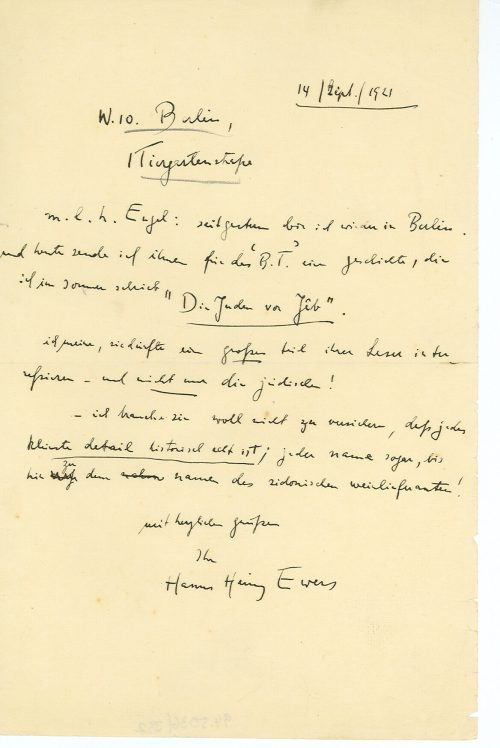 14/Sept./1921
W.10. Berlin,
Tiergartenstraße
m. l. h. Engel: seit gestern bin ich wieder in Berlin.
und heute sende ich ihnen für das "B.T." eine geschichte, die
ich im sommer schrieb "Die Juden von Jêb".
ich meine, sie dürfte ein großen teil ihrer Leser inter-
essieren – und nicht nur die jüdischen!
– ich brauche sie wohl nicht zu versichern, daß jedes
kleinste detail historisch echt ist; jeder name sogar, bis
hin zu dem namen des sidonischen weinlieferanten!
mit herzlichen grüßen
Ihr
Hanns Heinz Ewers